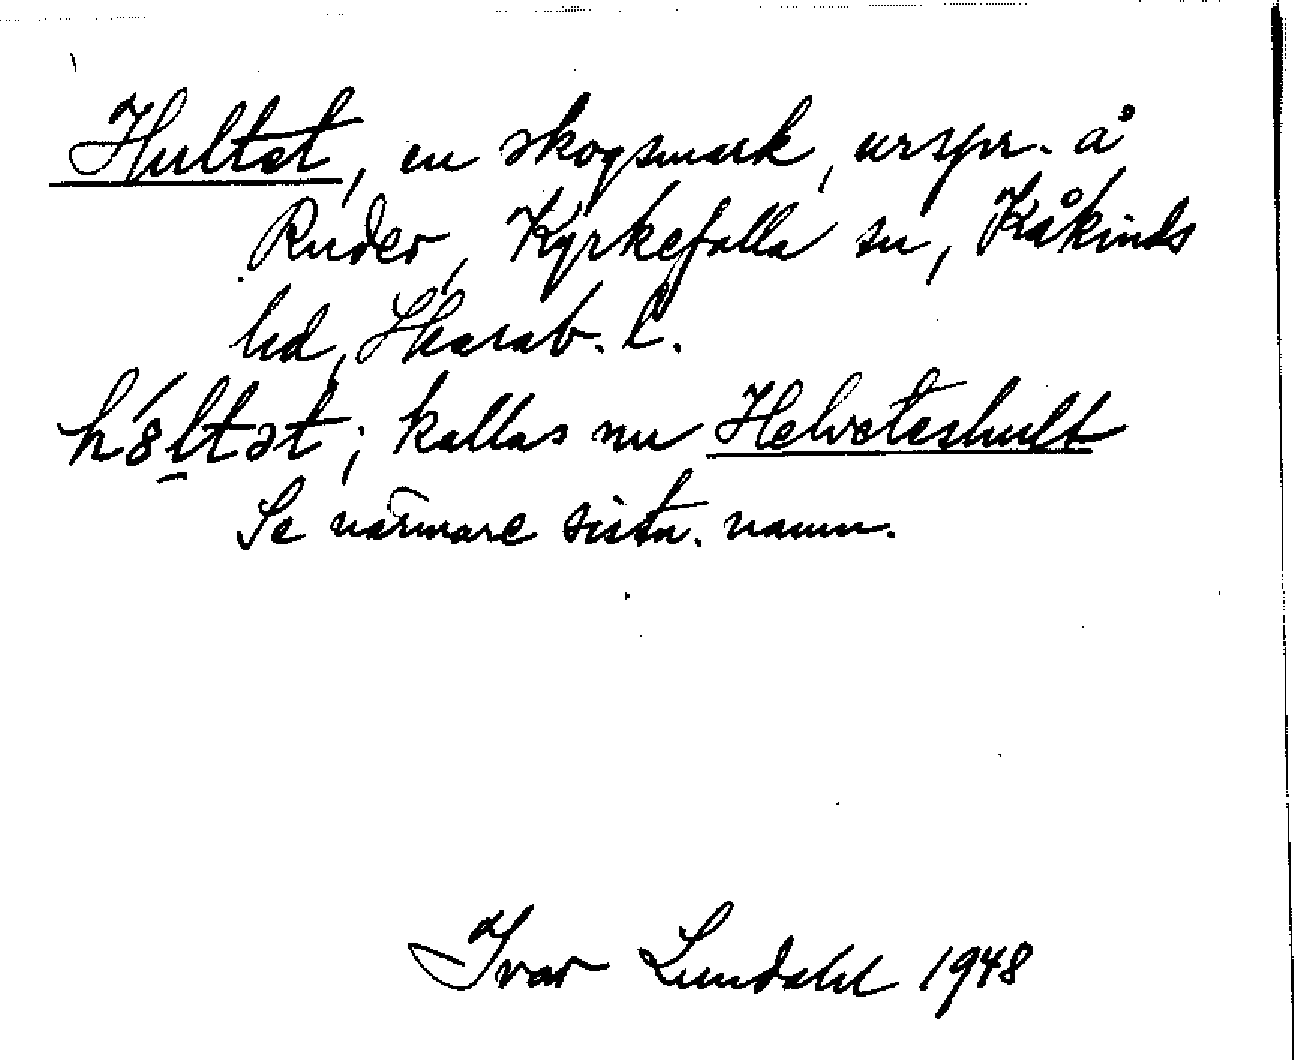 Hultet, en skogsmark, urspr. å
Ruder, Kyrkefalla sn, Kåkinds
hd, Skarab. l.
hóltət; kallas nu Helveteshult
Se närmare sistn. namn.
Ivar Lundahl 1948